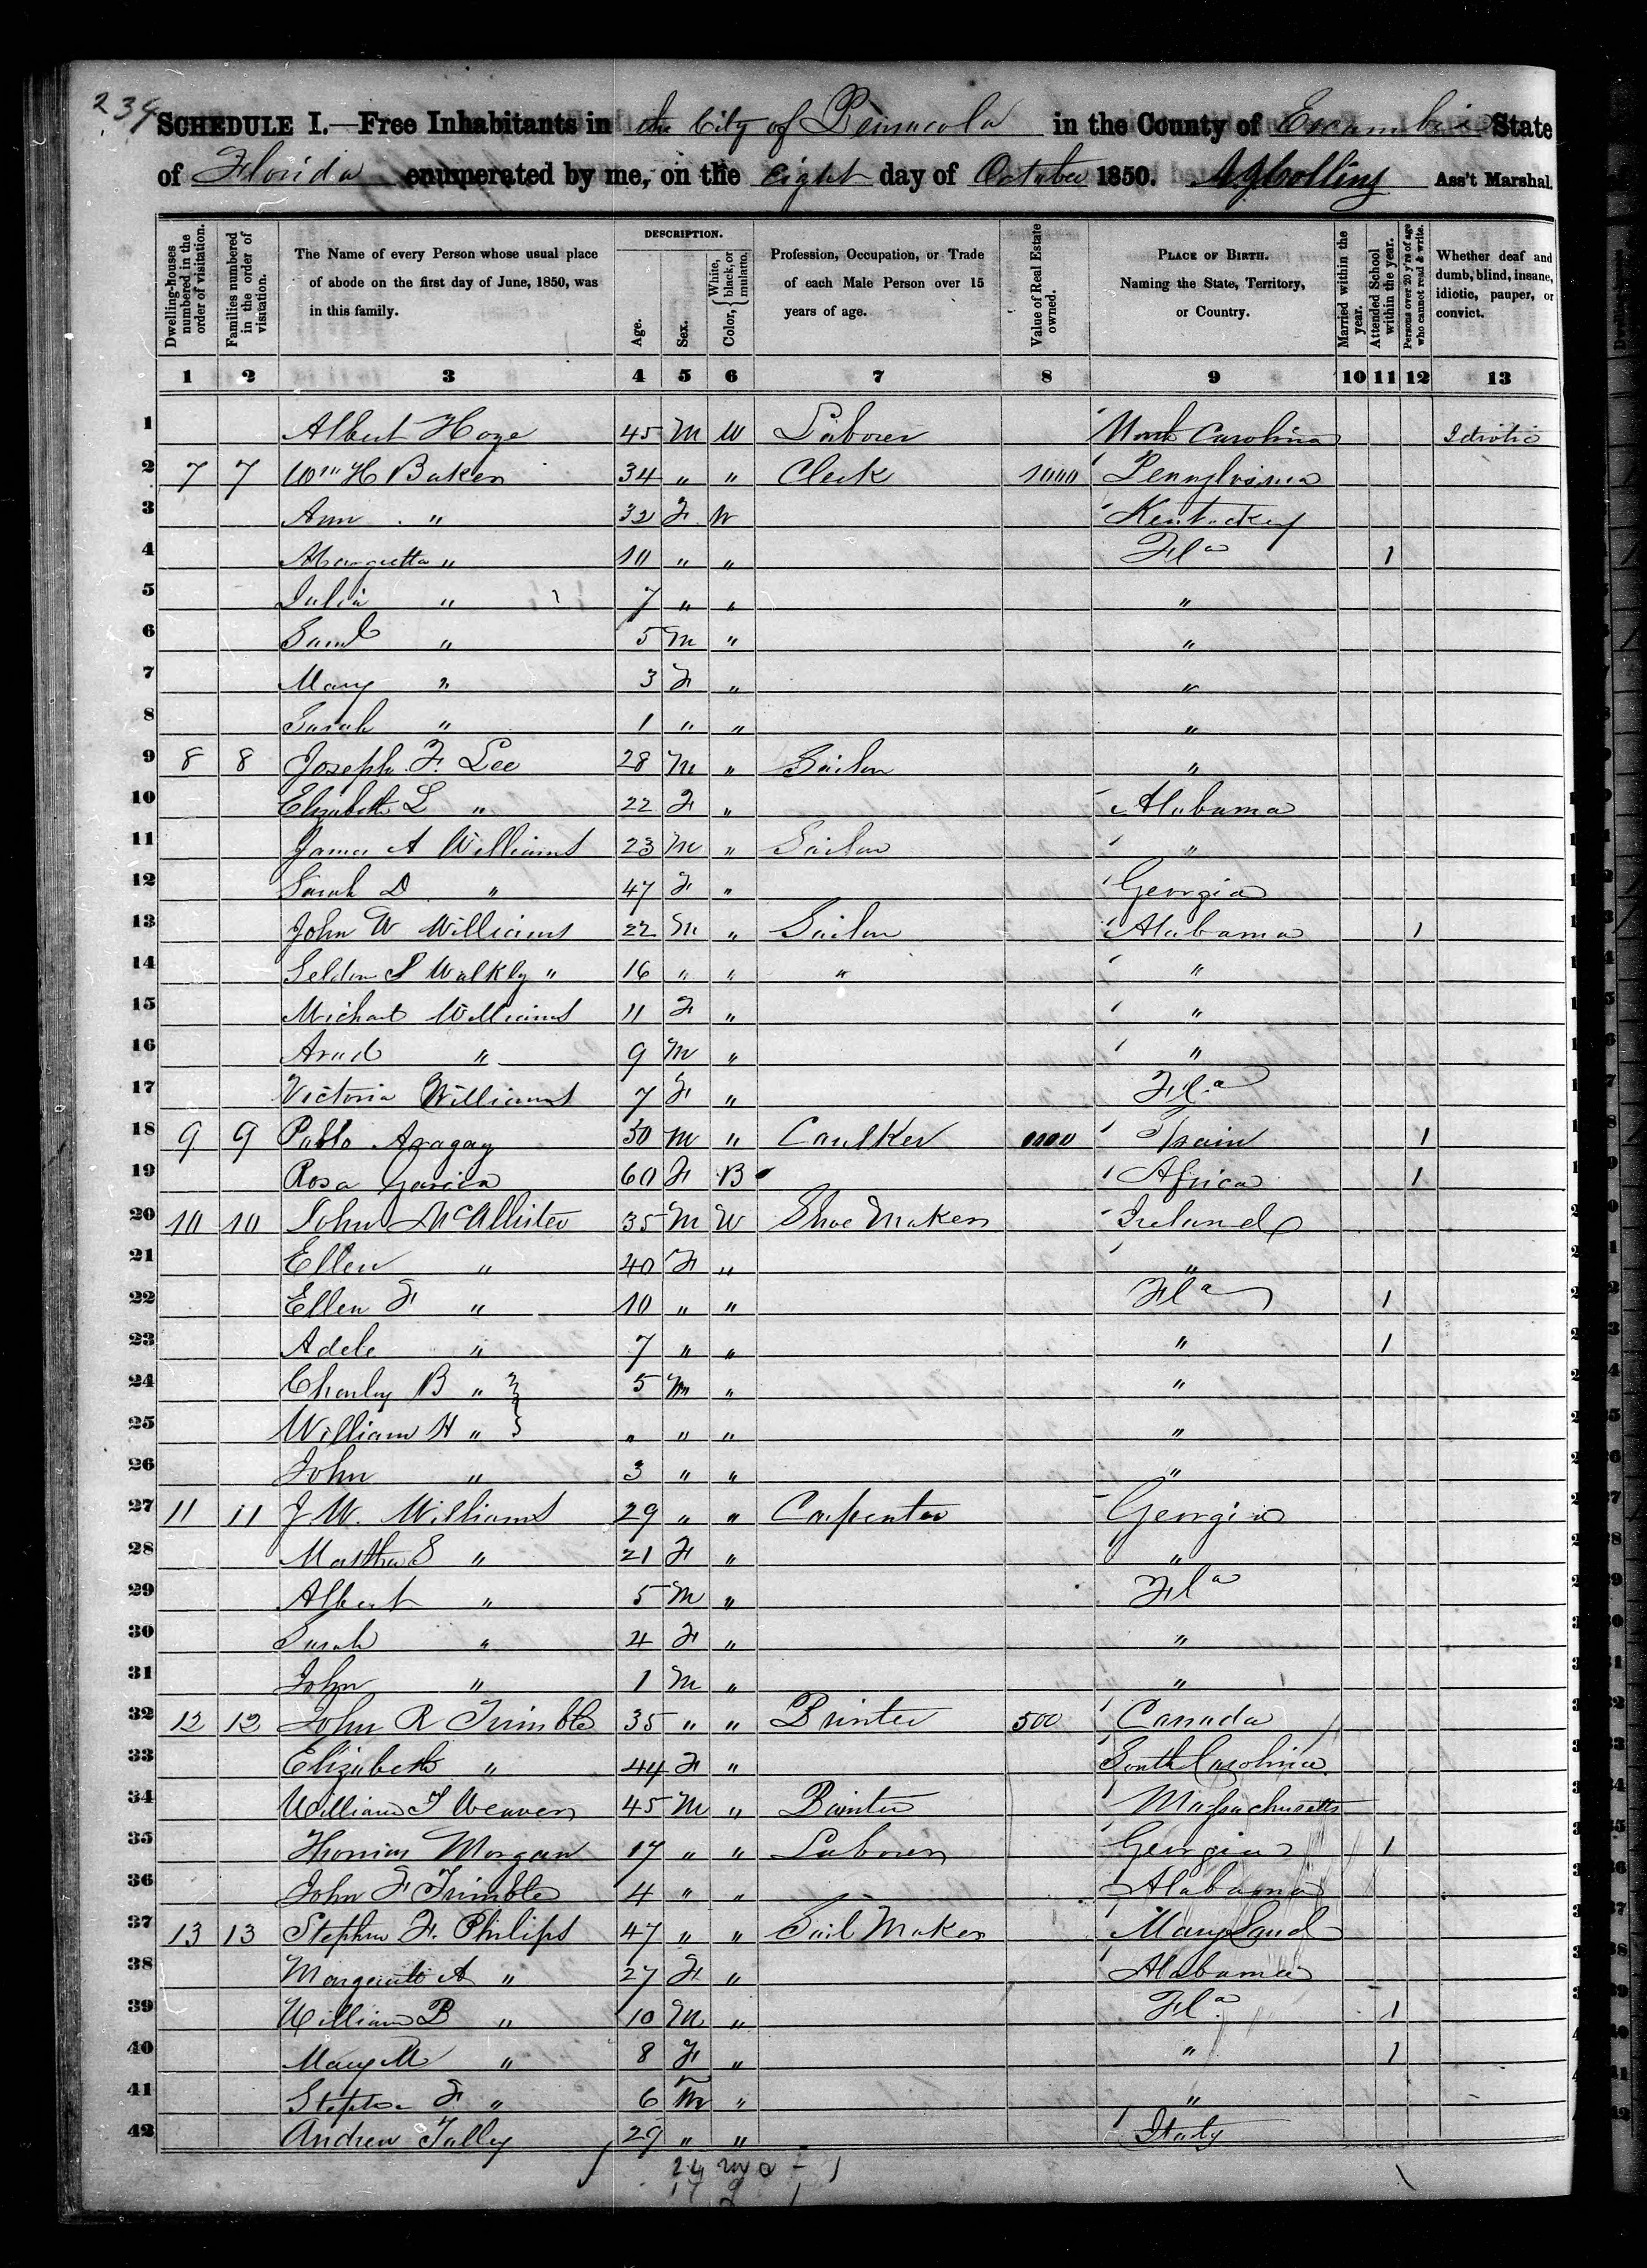 234
SCHEDULE I.—Free Inhabitants in the City of Pensacola in the County of Escambia State
of Florida enumerated by me, on the eight day of October 1850. Ass't Marshal.
Dwelling-houses numbered in the order of visitation.
Families numbered in the order of visitation.
The Name of every Person whose usual place of abode on the first day of June, 1850, was in this family.
DESCRIPTION.
Age.
Sex.
Color, { White, black, or mulatto.
Profession, Occupation, or Trade of each Male Person over 15 years of age.
Value of Real Estate owned.
PLACE OF BIRTH. Naming the State, Territory, or Country.
Married within the year.
Attended School within the year.
Persons over 20 y'rs of age who cannot read & write.
Whether deaf and dumb, blind, insane, idiotic, pauper, or convict.
1 2 3 4 5 6 7 8 9 10 11 12 13
1 Albert 45 M W Laborer North Carolina Idiotic
2 7 7 Wm H Baker 34 " " Clerk 1000 Pennylvania
3 Ann " 32 F W Kentuckey
4 Margretta " 10 " " Fla 1
5 Julia " 7 " " "
6 Saml " 5 M " "
7 Mary " 3 F " "
8 Sarah " 1 " " "
9 8 8 Joseph F. Lee 28 M " Sailor "
10 Elizabeth L " 22 F " Alabama
11 James A Williams 23 M " Sailor "
12 Sarah D " 47 F " Georgia
13 John W Williams 22 M " Sailor Alabama 1
14 Seldon S Walkly " 16 " " " "
15 Williams 11 F " "
16 " 9 M " "
17 Victoria Williams 7 F " Fla
18 9 9 Pablo M " Caulker Spain 1
19 Rosa Garcia 60 F B Africa 1
20 10 10 John McAllister 35 M W Shoe Maker Ireland
21 Ellen " 40 F " "
22 Ellen F " 10 " " Fla 1
23 Adele " 7 " " " 1
24 Charley B " 5 M " "
25 William H " " " " "
26 John " 3 " " "
27 11 11 J. W. Williams 29 " " Carpenter Georgia
28 Martha S " 21 F " "
29 Albert " 5 M " Fla
30 Sarah " 4 F " "
31 John " 1 M " "
32 12 12 John R Trimble 35 " " 500 Canada
33 Elizabeth " 44 F " South Carolina
34 William T Weaver 45 M " Painter Massachusetts
35 Thomas Morgan 17 " " Laborer Georgia 1
36 John F Trimble 4 " " Alabama
37 13 13 Stephen F. Philips 47 " " Sail Maker Maryland
38 A " 27 F " Alabama
39 William B " 10 M " Fla. 1
40 Mary M " 8 F " " 1
41 Stephen F " 6 M " "
42 Andrew 29 " " Italy